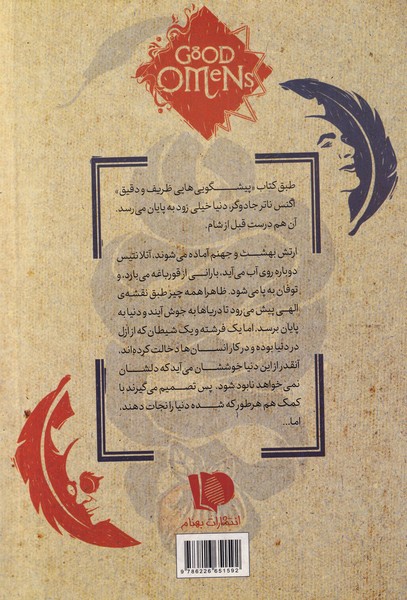 GOOD
OMENS
طبق کتاب «پیشگویی‌هایی ظریف و دقیق»
اگنس ناتر جادوگر، دنیا خیلی زود به پایان می‌رسد.
آن هم درست قبل از شام.
ارتش بهشت و جهنم آماده می‌شوند، آتلانتیس
دوباره روی آب می‌آید، بارانی از قورباغه می‌بارد، و
توفان به پا می‌شود. ظاهرا همه چیز طبق نقشه‌ی
الهی پیش می‌رود تا دریاها به جوش آیند و دنیا به
پایان برسد. اما یک فرشته و یک شیطان که از ازل
در دنیا بوده و در کار انسان‌ها دخالت کرده‌اند،
آنقدر از این دنیا خوششان می‌آید که دلشان
نمی‌خواهد نابود شود. پس تصمیم می‌گیرند با
کمک هم هرطور که شده دنیا را نجات دهند.
اما...
انتشارات بهنام
9 786226 651592